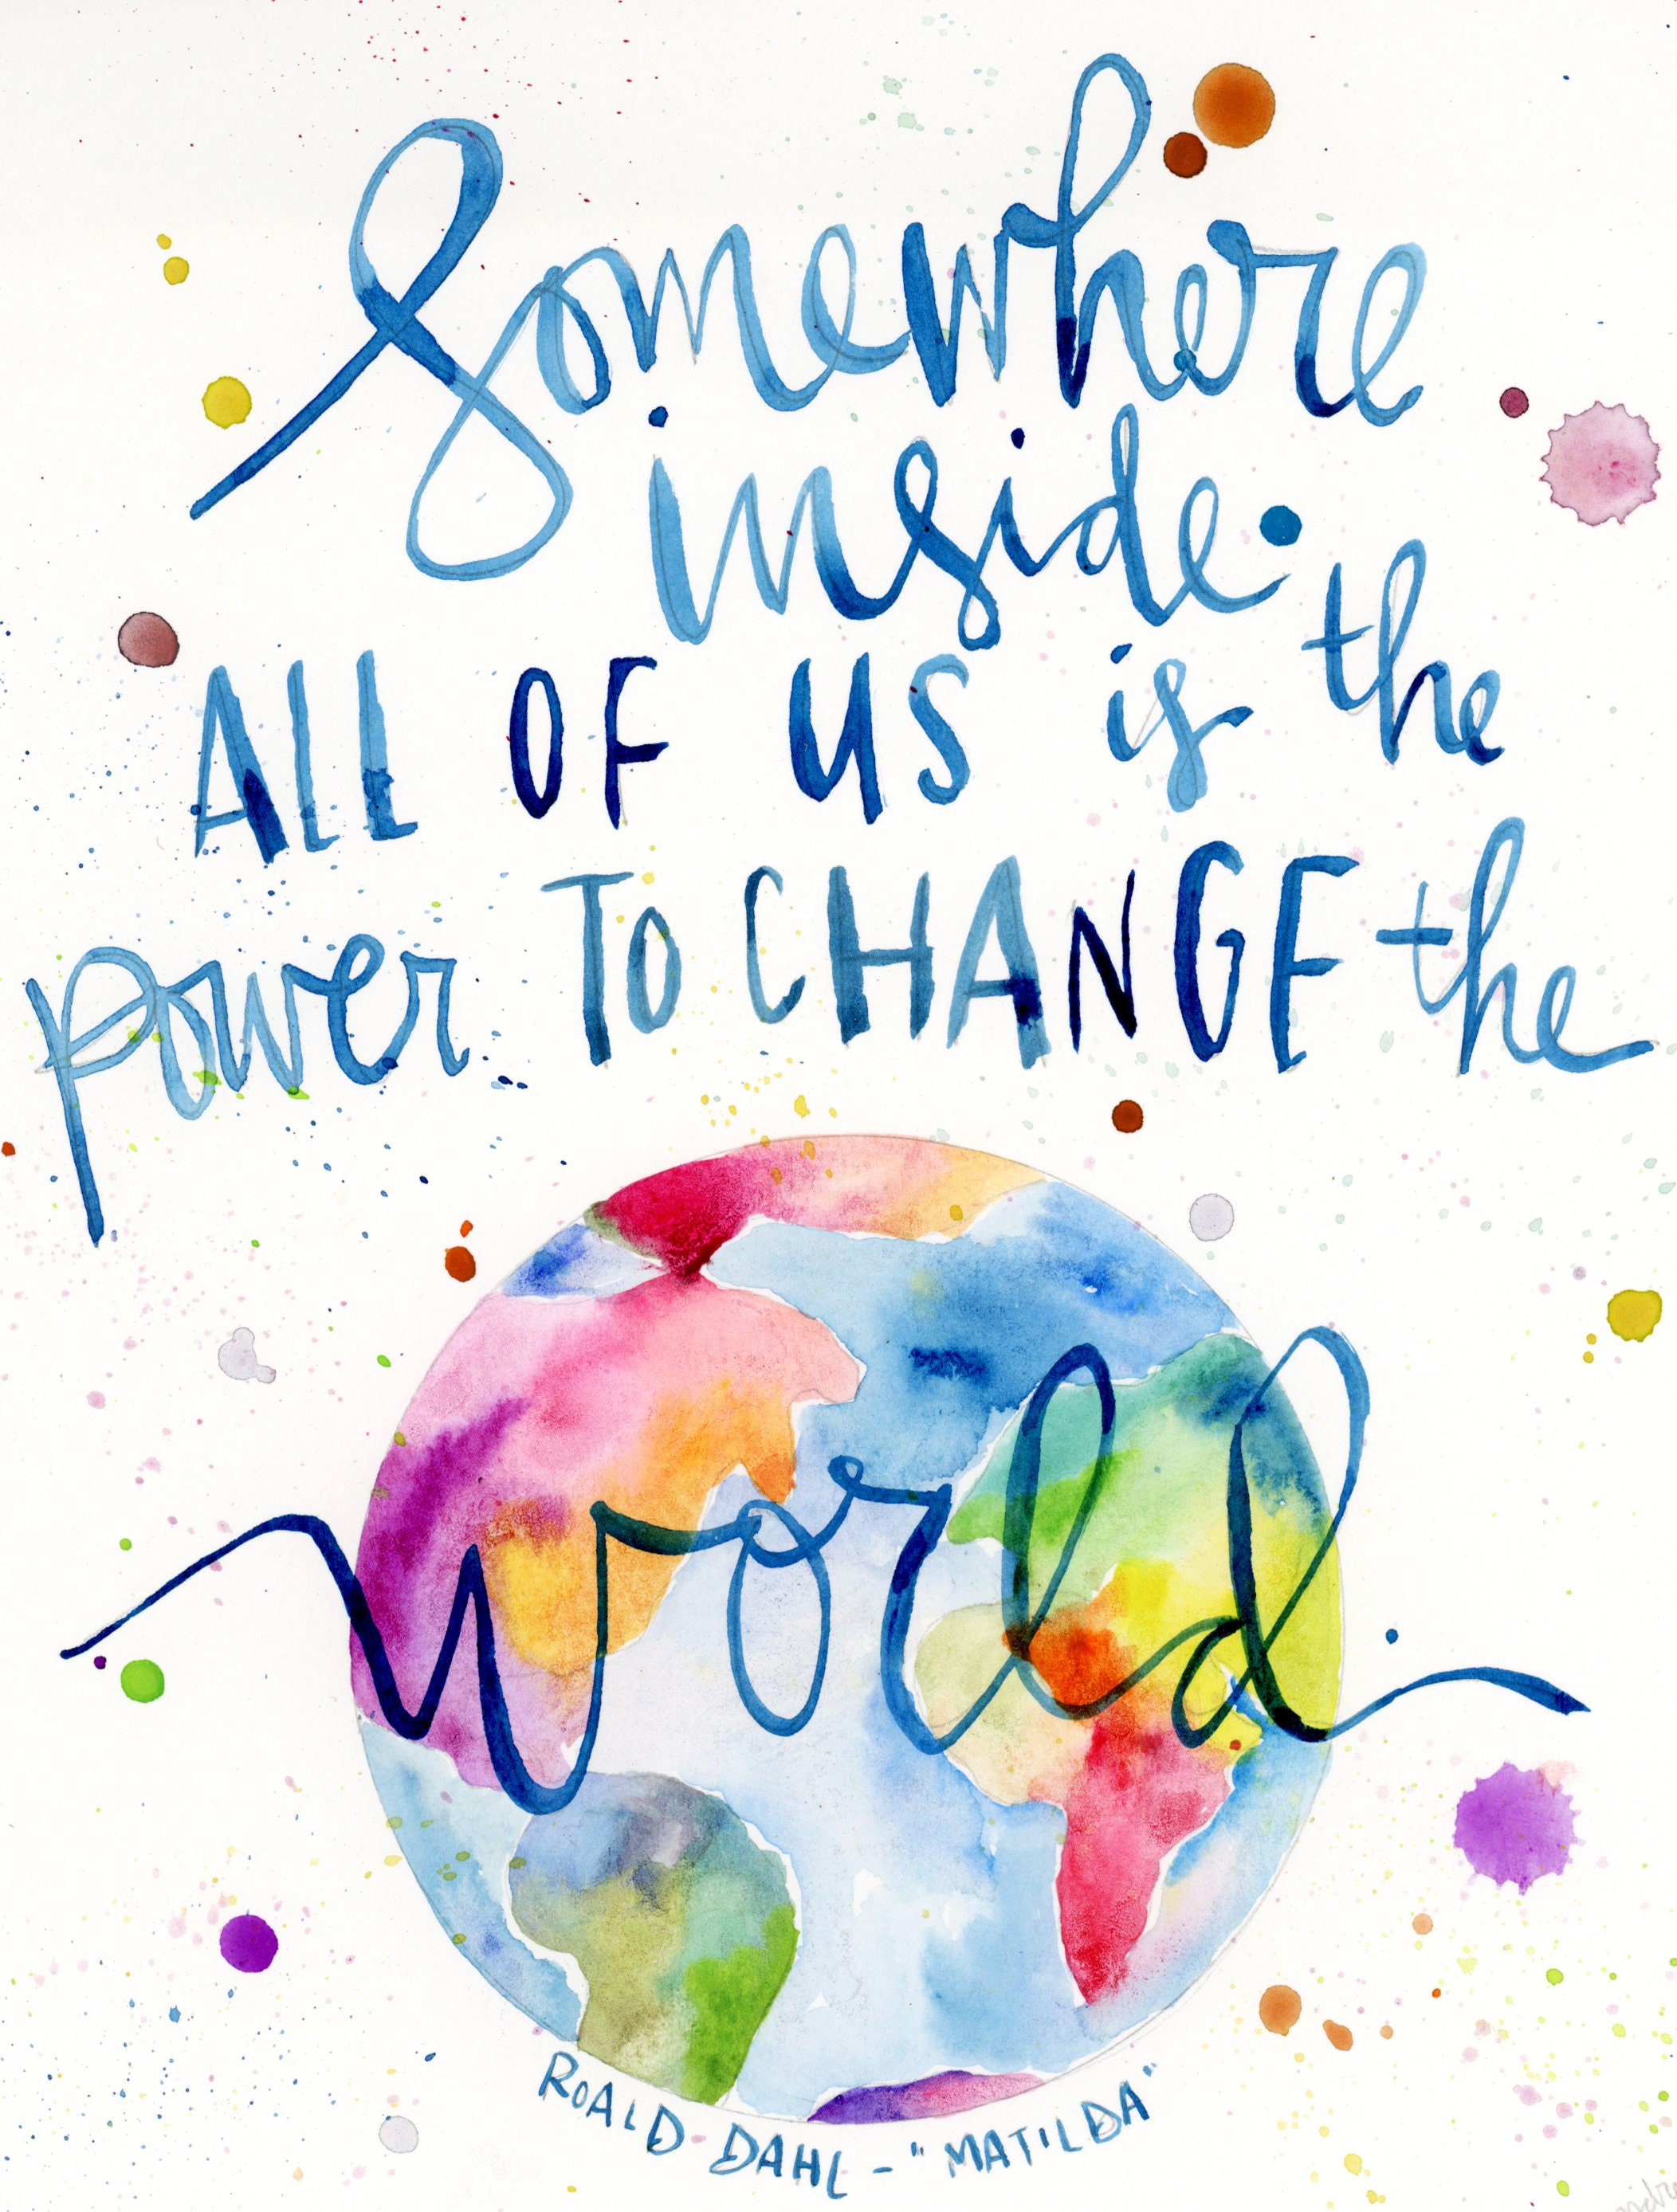 Somewhere
inside
ALL OF US is the
power TO CHANGE the
world
ROALD DAHL - "MATILDA"